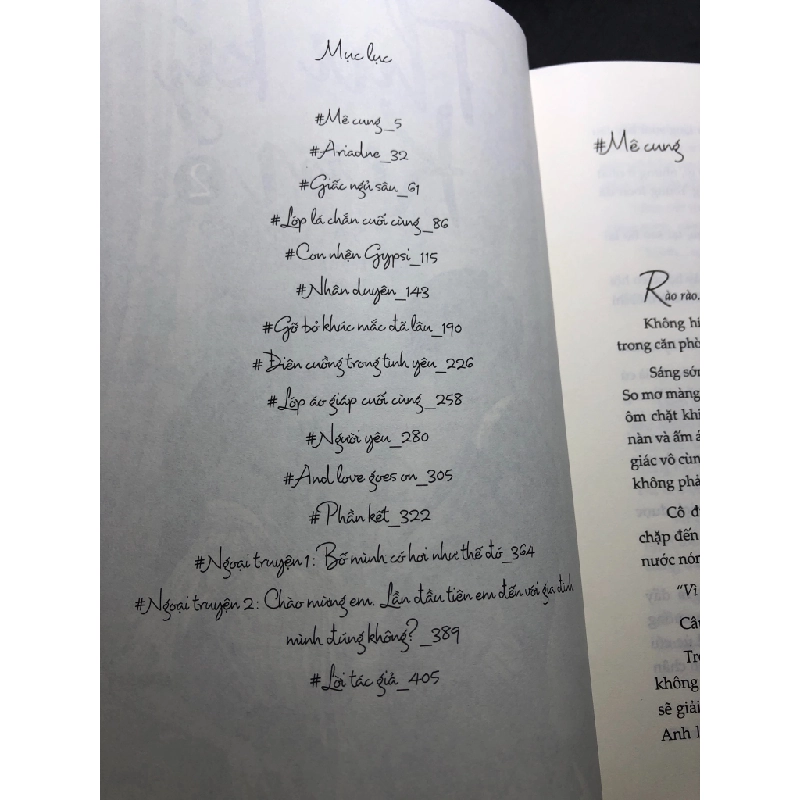 Mục lục
#Mê cung_5
#Ariadne_32
#Giấc ngủ sâu_61
#Lớp lá chắn cuối cùng_86
#Con nhện Gypsi_115
#Nhân duyên_143
#Gỡ bỏ khúc mắc đã lâu_190
#Điên cuồng trong tình yêu_226
#Lớp áo giáp cuối cùng_258
#Người yêu_280
#And love goes on_305
#Phần kết_322
#Ngoại truyện 1: Bố mình có hơi như thế đó_364
#Ngoại truyện 2: Chào mừng em. Lần đầu tiên em đến với gia đình
mình đúng không?_389
#Lời tác giả_405
#Mê cung
Rào rào.
Không hi
trong căn phò
Sáng sớn
So mơ màng
ôm chặt khi
nàn và ấm á
giác vô cùn
không phả
Cô đ
chặp đến
nước nón
"Vì
Câu
Tr
không
sẽ giải
Anh l